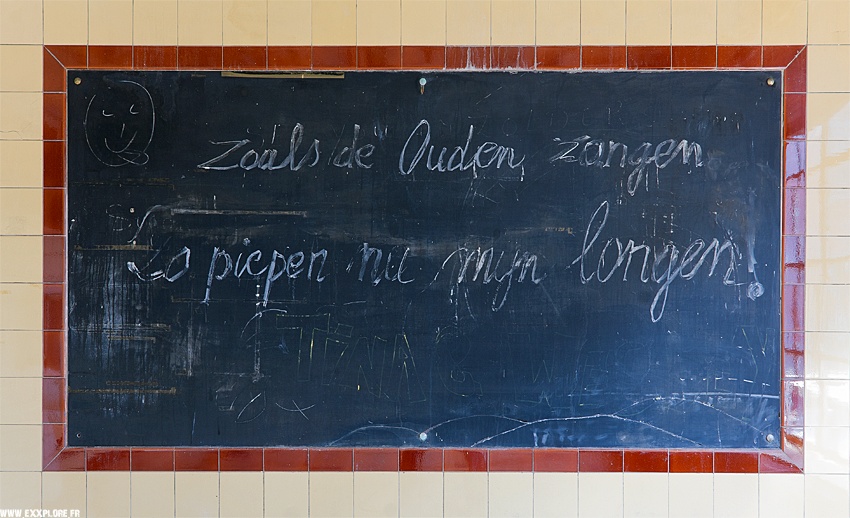 Zoals de Ouden zongen
Zo piepen nu mijn longen!
TINA
WWW.EXXPLORE.FR